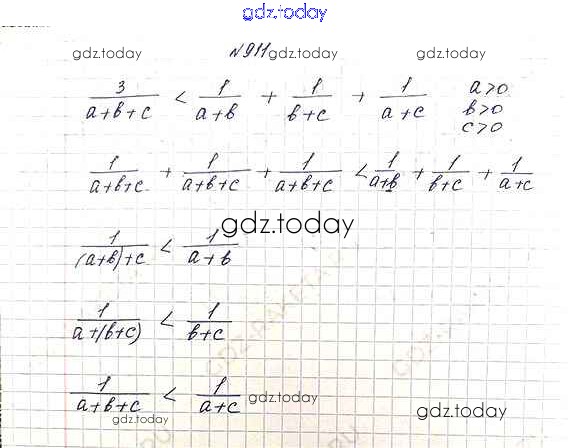 gdz.today
gdz.today №911 gdz.today gdz.today
3/(a+b+c) < 1/(a+b) + 1/(b+c) + 1/(a+c) a>0
b>0
c>0
1/(a+b+c) + 1/(a+b+c) + 1/(a+b+c) < 1/(a+b) + 1/(b+c) + 1/(a+c)
gdz.today
1/((a+b)+c) < 1/(a+b)
1/(a+(b+c)) < 1/(b+c)
1/(a+b+c) < 1/(a+c) gdz.today
gdz.today gdz.today